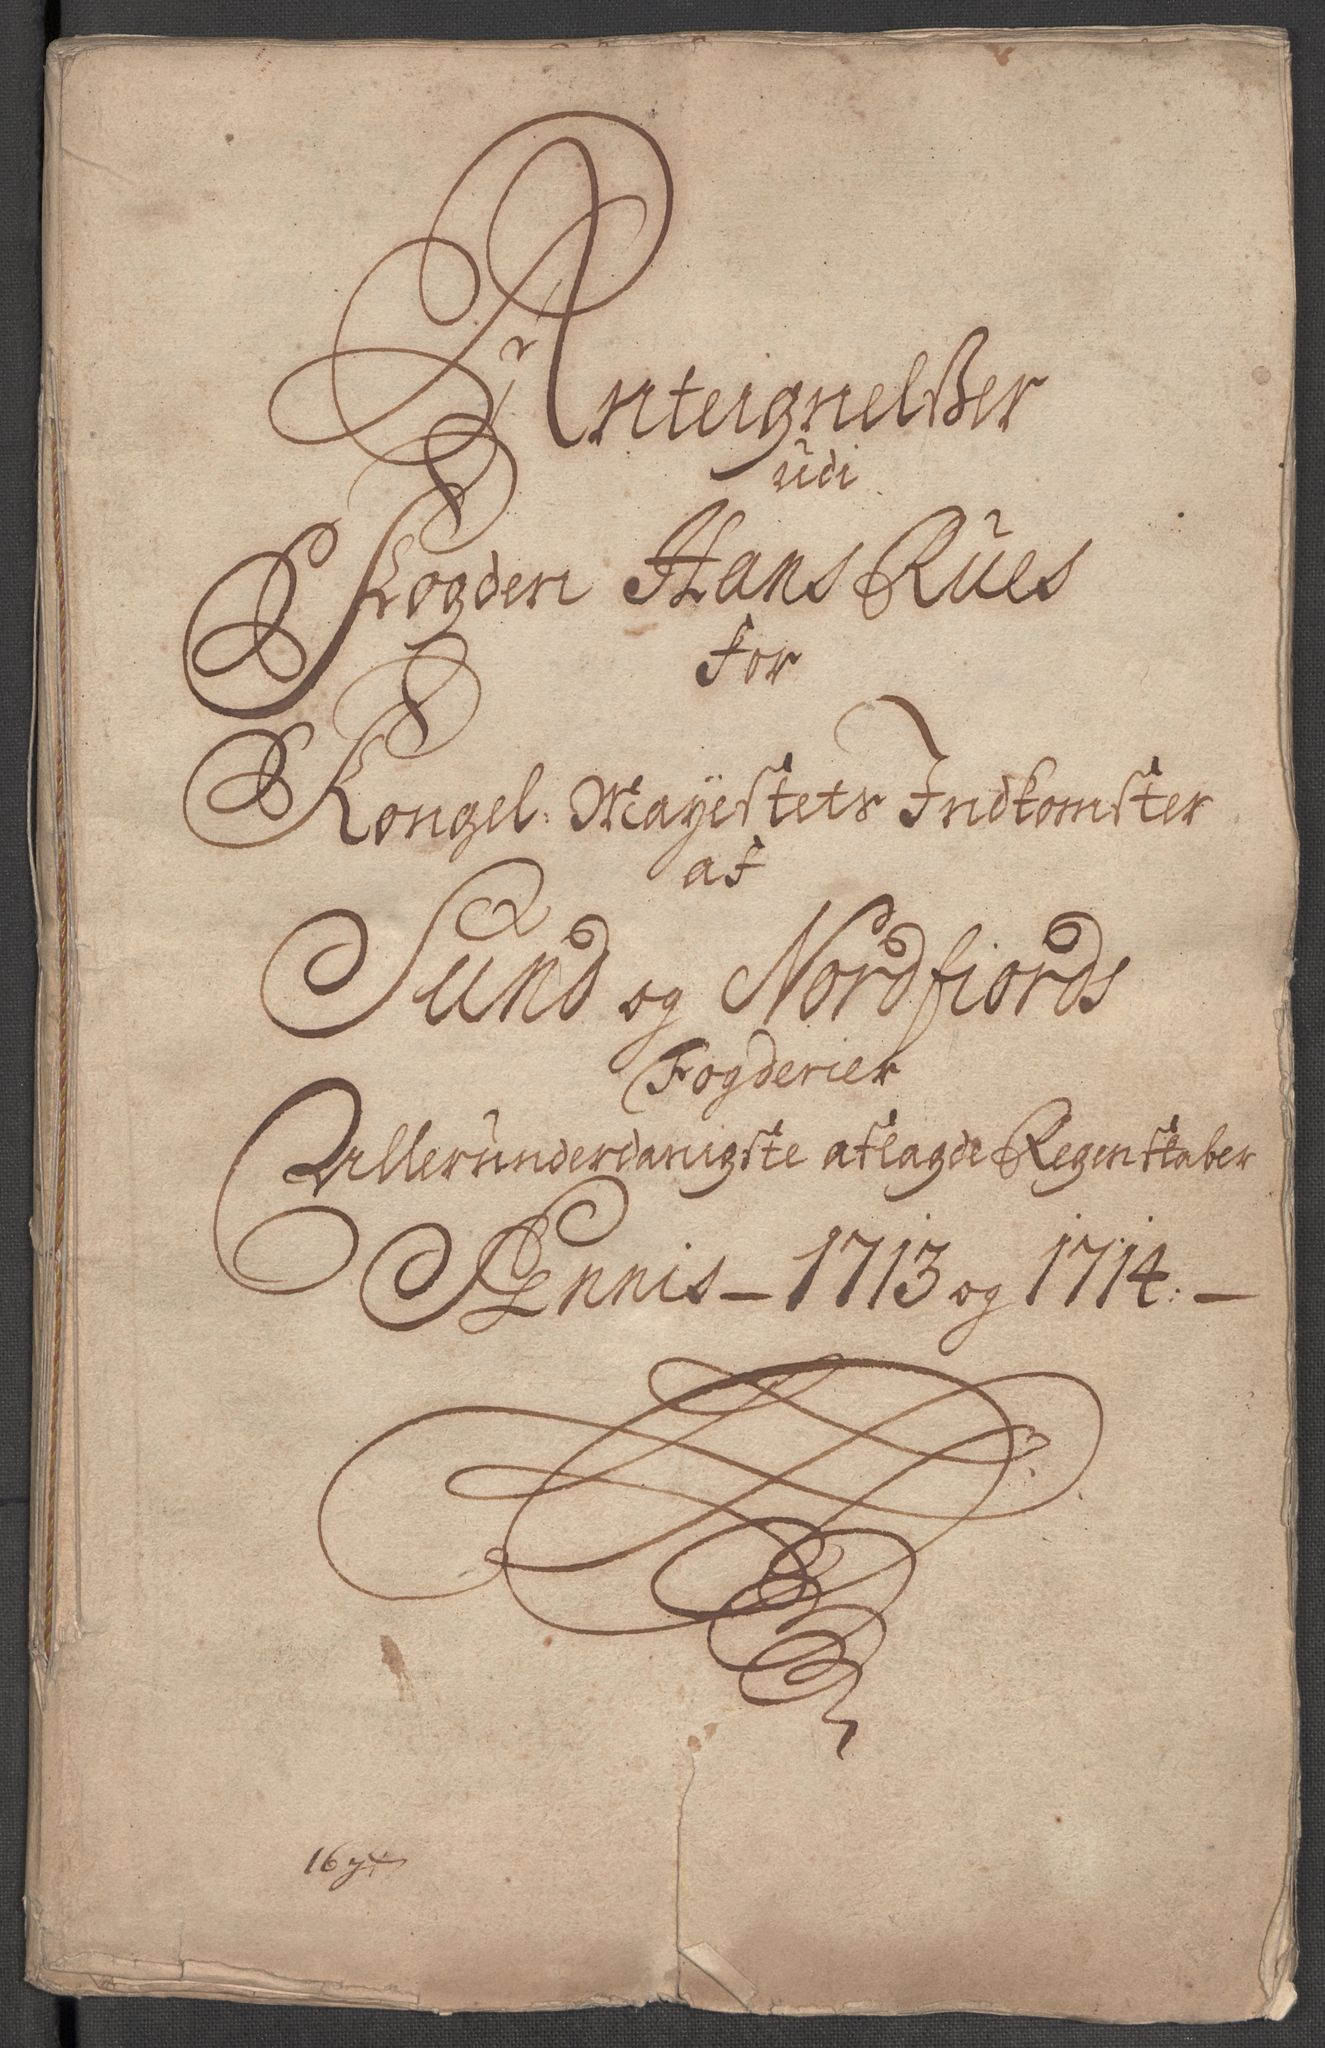 Anteignelßer
udi
Fogden Hans Rües
for
Kongel: Mayestets Indkomster
af
Sund og Nordfiords
Fogderier
Alleründerdanigste aflagde Regenskaber
Pennis – 1713 og 1714: –